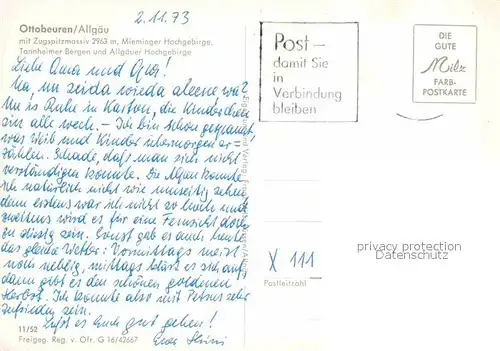 2.11.73
Ottobeuren/Allgäu
mit Zugspitzmassiv 2963 m, Mieminger Hochgebirge,
Tannheimer Bergen und Allgäuer Hochgebirge
Liebe Oma und Opa!
Na, nu seida wieda aleene wa?
Nu is Ruhe in Karton, die Kinderchen
sin alle wech. – Ich bin schon gespannt,
was Weib und Kinder übermorgen er=
zählen. Schade, daß man sich nicht
verständigen konnte. Die Alpen konnte
ich natürlich nicht wie umseitig sehen,
denn erstens war ich nicht so hoch und
zweitens wird es für eine Fernsicht doch
zu diesig sein. Sonst gab es auch heute
das gleiche Wetter: Vormittags meist
noch neblig, mittags klärt es sich auf,
dann gibt es den schönen goldenen
Herbst. Ich konnte also mit Petrus sehr
zufrieden sein.
Laßt es Euch gut gehen!
Euer
11/52
Freigeg. Reg. v. Ofr. G 16/42667
Post –
damit Sie
in
Verbindung
bleiben
DIE
GUTE
Milz
FARB-
POSTKARTE
X 111
Postleitzahl
privacy protection
Datenschutz